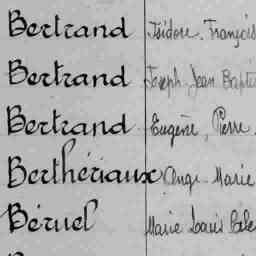 Bertrand Isidore, François
Bertrand Joseph Jean Bapti
Bertrand Eugène, Pierre
Berthériaux Ange Marie
Béruel Marie Louis